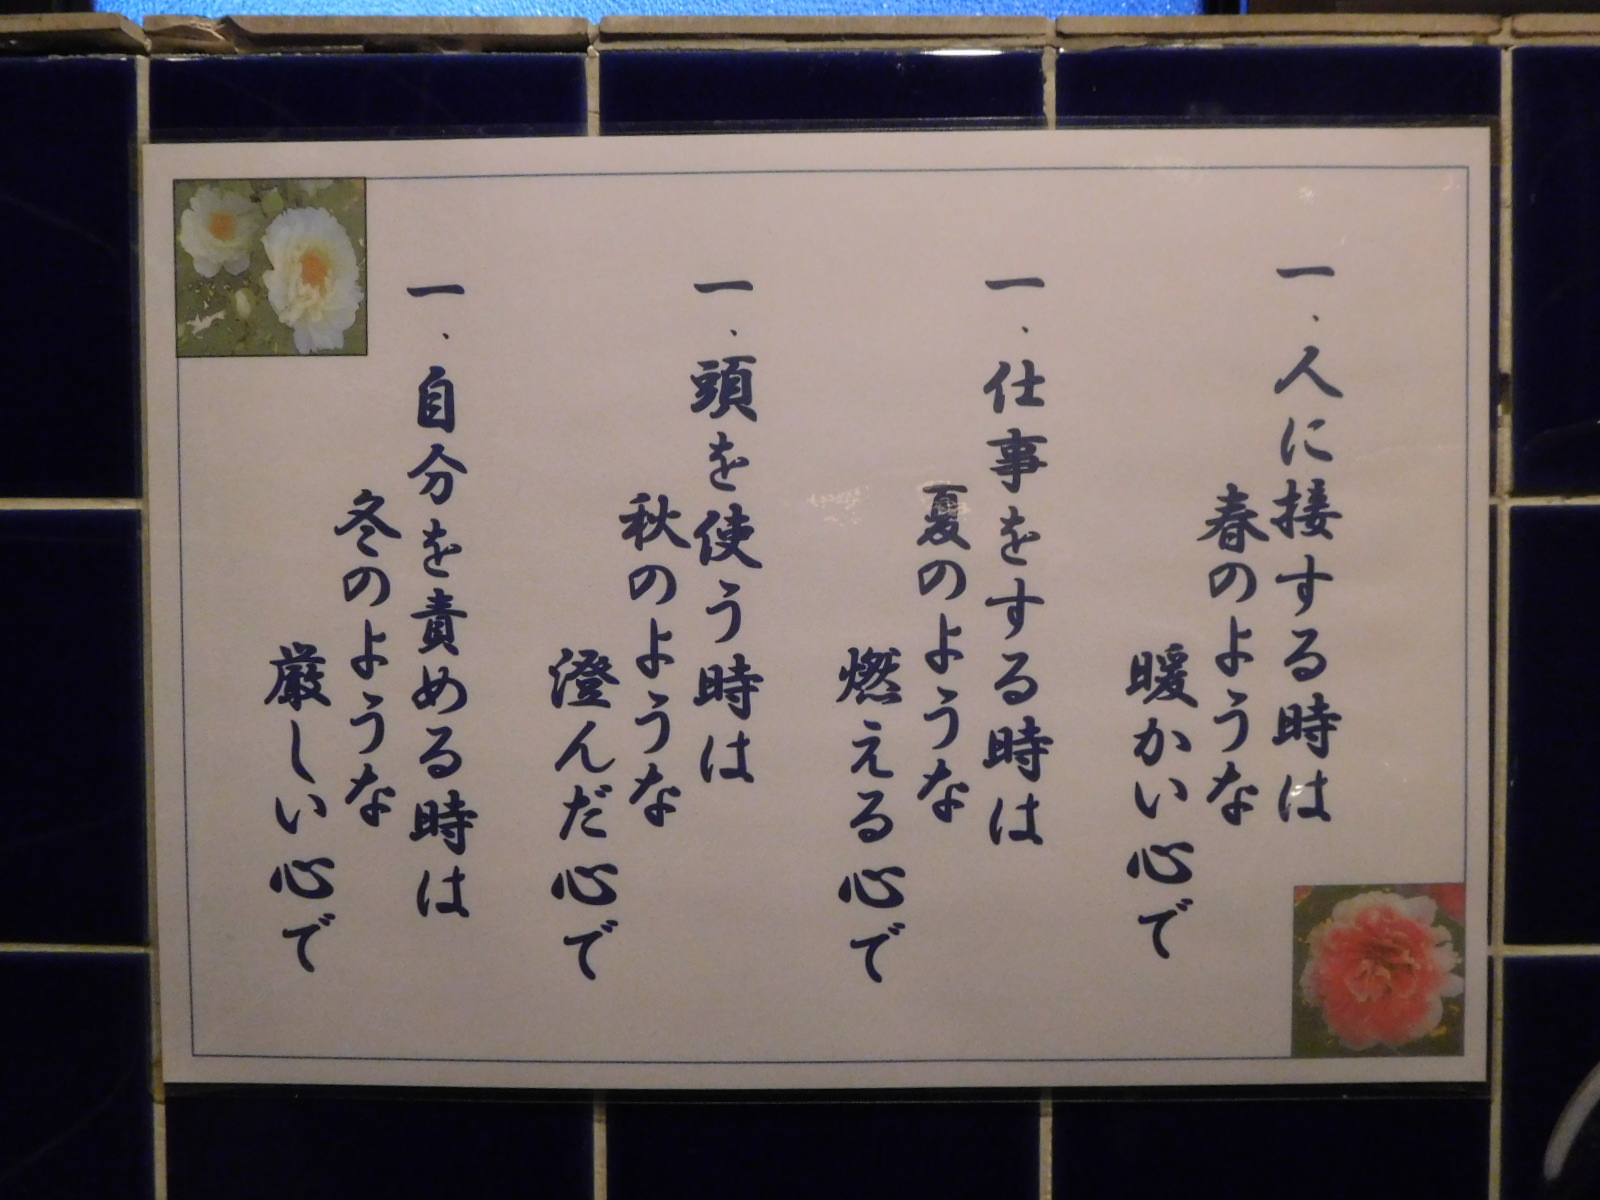 一、人に接する時は
春のような
暖かい心で
一、仕事をする時は
夏のような
燃える心で
一、頭を使う時は
秋のような
澄んだ心で
一、自分を責める時は
冬のような
厳しい心で